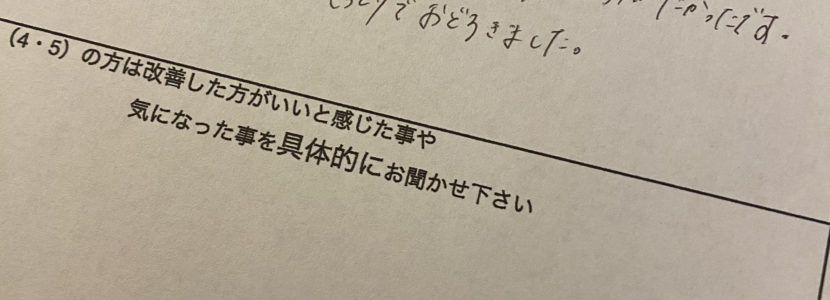 でおどろきました。
(4・5)の方は改善した方がいいと感じた事や
気になった事を具体的にお聞かせ下さい